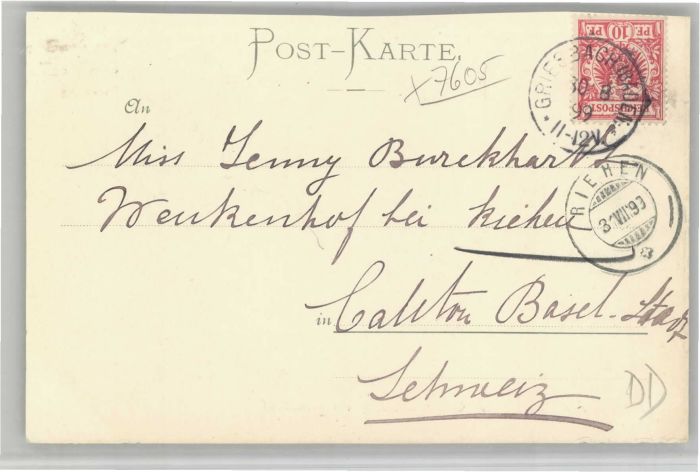 POST-KARTE.
x7605
An
Miss Jenny Burckhardt
Wenkenhof bei Riehen
in Canton Basel-Stadt
Schweiz
DD
10 PF 10 PF
REICHSPOST
GRIESBACH (BADEN)
30 8
99
11-12V.
RIEHEN
31 VIII 99